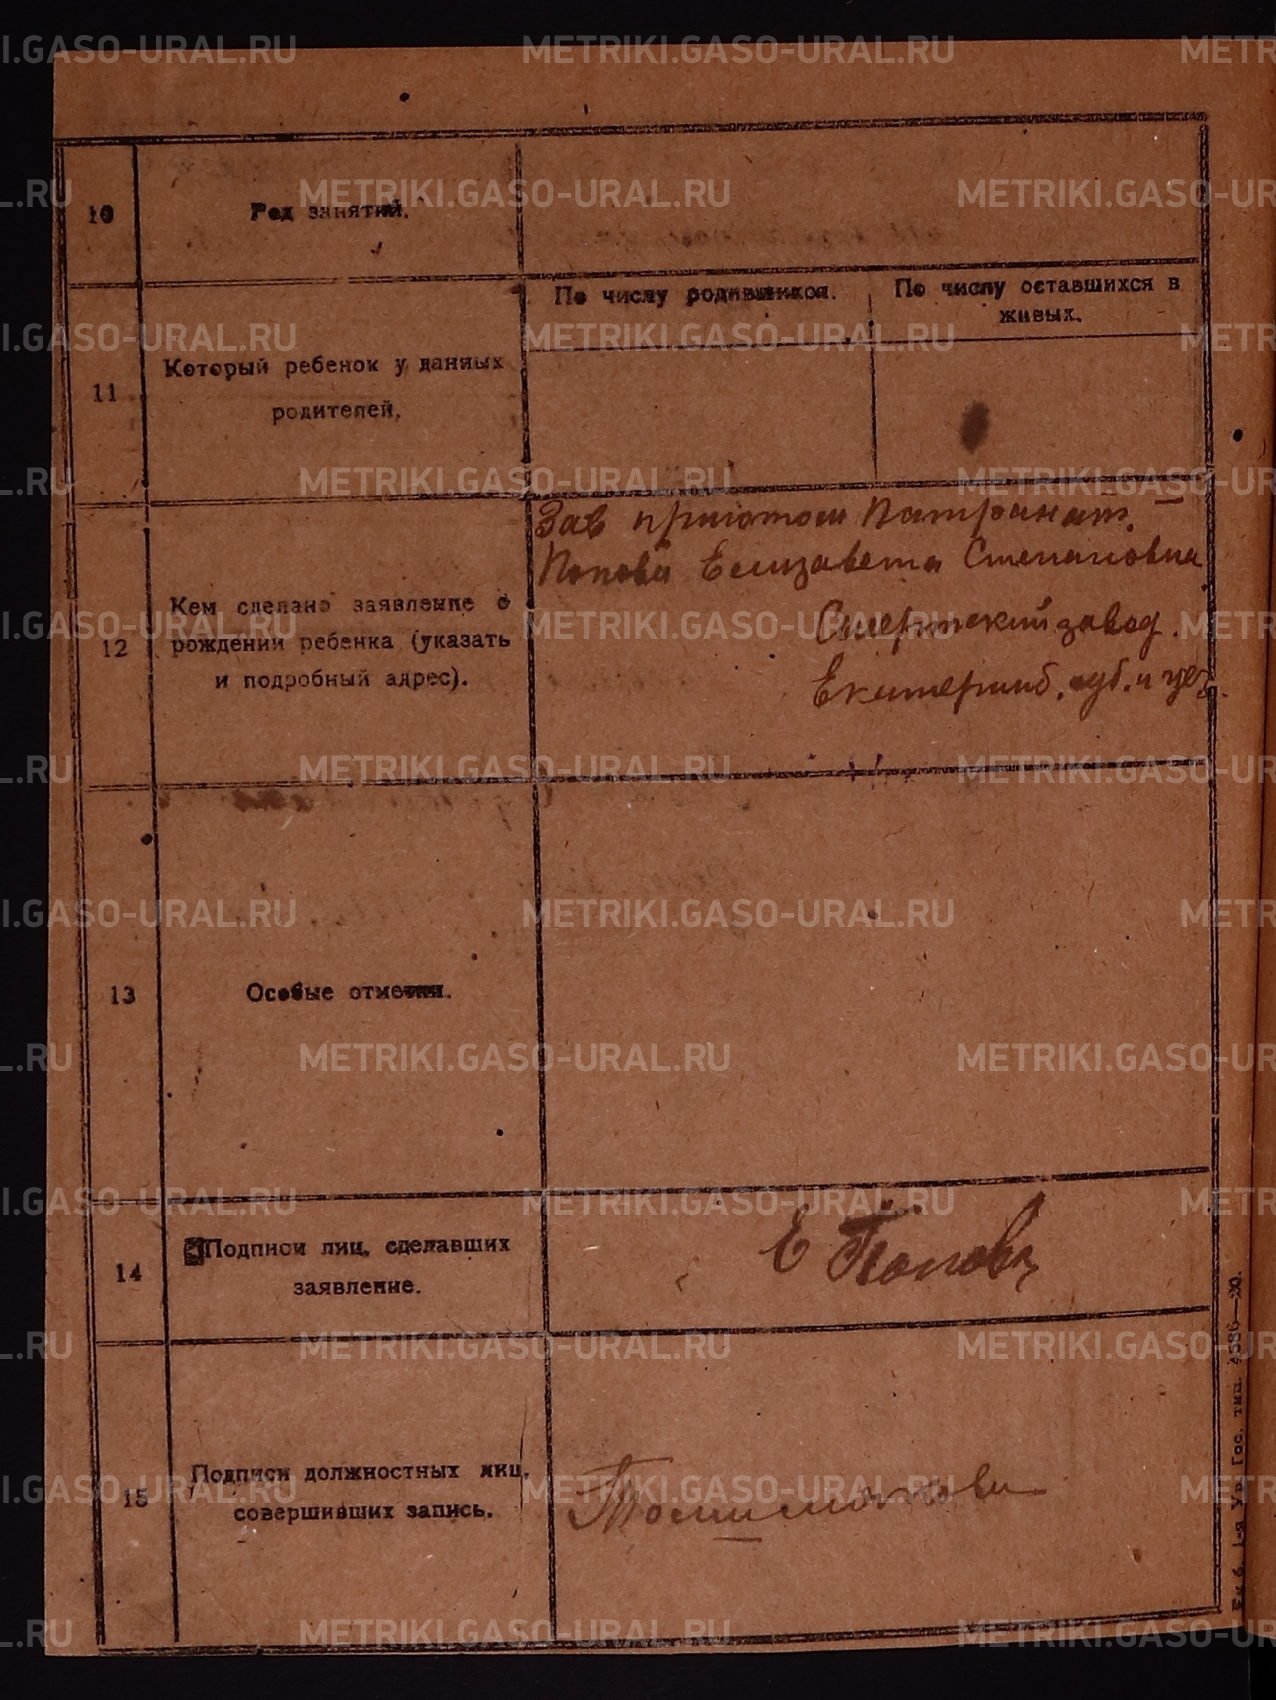 10
Род занятий.
11
Который ребенок у данных
родителей.
По числу родившихся.
По числу оставшихся в
живых.
12
Кем сделано заявление о
рождении ребенка (указать
и подробный адрес).
Зав приютом Патронат.
Попова Елизавета Степановна
завод.
Екатеринб. губ. и уез.
13
Особые отметки.
14
Подписи лиц, сделавших
заявление.
Е Попова
15
Подписи должностных лиц,
совершивших запись.
Екб. 1-я Ур. Гос. тип.
METRIKI.GASO-URAL.RU